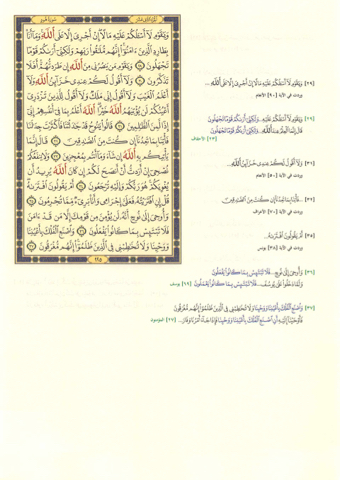 الجزء الثاني عشر
سورة هود
وَيَٰقَوْمِ لَآ أَسْـَٔلُكُمْ عَلَيْهِ مَالًا إِنْ أَجْرِىَ إِلَّا عَلَى ٱللَّهِ وَمَآ أَنَا۠
بِطَارِدِ ٱلَّذِينَ ءَامَنُوٓا۟ إِنَّهُم مُّلَٰقُوا۟ رَبِّهِمْ وَلَٰكِنِّىٓ أَرَىٰكُمْ قَوْمًا
تَجْهَلُونَ ٢٩ وَيَٰقَوْمِ مَن يَنصُرُنِى مِنَ ٱللَّهِ إِن طَرَدتُّهُمْ أَفَلَا
تَذَكَّرُونَ ٣٠ وَلَآ أَقُولُ لَكُمْ عِندِى خَزَآئِنُ ٱللَّهِ وَلَآ
أَعْلَمُ ٱلْغَيْبَ وَلَآ أَقُولُ إِنِّى مَلَكٌ وَلَآ أَقُولُ لِلَّذِينَ تَزْدَرِىٓ
أَعْيُنُكُمْ لَن يُؤْتِيَهُمُ ٱللَّهُ خَيْرًا ٱللَّهُ أَعْلَمُ بِمَا فِىٓ أَنفُسِهِمْ إِنِّىٓ
إِذًا لَّمِنَ ٱلظَّٰلِمِينَ ٣١ قَالُوا۟ يَٰنُوحُ قَدْ جَٰدَلْتَنَا فَأَكْثَرْتَ جِدَٰلَنَا
فَأْتِنَا بِمَا تَعِدُنَآ إِن كُنتَ مِنَ ٱلصَّٰدِقِينَ ٣٢ قَالَ إِنَّمَا
يَأْتِيكُم بِهِ ٱللَّهُ إِن شَآءَ وَمَآ أَنتُم بِمُعْجِزِينَ ٣٣ وَلَا يَنفَعُكُمْ
نُصْحِىٓ إِنْ أَرَدتُّ أَنْ أَنصَحَ لَكُمْ إِن كَانَ ٱللَّهُ يُرِيدُ أَن
يُغْوِيَكُمْ هُوَ رَبُّكُمْ وَإِلَيْهِ تُرْجَعُونَ ٣٤ أَمْ يَقُولُونَ ٱفْتَرَىٰهُ
قُلْ إِنِ ٱفْتَرَيْتُهُۥ فَعَلَىَّ إِجْرَامِى وَأَنَا۠ بَرِىٓءٌ مِّمَّا تُجْرِمُونَ ٣٥
وَأُوحِىَ إِلَىٰ نُوحٍ أَنَّهُۥ لَن يُؤْمِنَ مِن قَوْمِكَ إِلَّا مَن قَدْ ءَامَنَ
فَلَا تَبْتَئِسْ بِمَا كَانُوا۟ يَفْعَلُونَ ٣٦ وَٱصْنَعِ ٱلْفُلْكَ بِأَعْيُنِنَا
وَوَحْيِنَا وَلَا تُخَٰطِبْنِى فِى ٱلَّذِينَ ظَلَمُوٓا۟ إِنَّهُم مُّغْرَقُونَ ٣٧
٢٢٥
[٢٩] وَيَٰقَوْمِ لَآ أَسْـَٔلُكُمْ عَلَيْهِ مَالًا إِنْ أَجْرِىَ إِلَّا عَلَى ٱللَّهِ...
وردت في الآية [٩٠] الأنعام
[٢٩] وَلَٰكِنِّىٓ أَرَىٰكُمْ قَوْمًا تَجْهَلُونَ
[٣١] وَلَآ أَقُولُ لَكُمْ عِندِى خَزَآئِنُ ٱللَّهِ...
وردت في الآية [٥٠] الأنعام
[٣٢] ...فَأْتِنَا بِمَا تَعِدُنَآ إِن كُنتَ مِنَ ٱلصَّٰدِقِينَ
وردت في الآية [٧٠] الأعراف
[٣٥] أَمْ يَقُولُونَ ٱفْتَرَىٰهُ...
وردت في الآية [٣٨] يونس
[٣٦] وَأُوحِىَ إِلَىٰ نُوحٍ... فَلَا تَبْتَئِسْ بِمَا كَانُوا۟ يَفْعَلُونَ
وَلَمَّا دَخَلُوا۟ عَلَىٰ يُوسُفَ... فَلَا تَبْتَئِسْ بِمَا كَانُوا۟ يَعْمَلُونَ [٦٩] يوسف
[٣٧] وَٱصْنَعِ ٱلْفُلْكَ بِأَعْيُنِنَا وَوَحْيِنَا وَلَا تُخَٰطِبْنِى فِى ٱلَّذِينَ ظَلَمُوٓا۟ إِنَّهُم مُّغْرَقُونَ
فَأَوْحَيْنَآ إِلَيْهِ أَنِ ٱصْنَعِ ٱلْفُلْكَ بِأَعْيُنِنَا وَوَحْيِنَا فَإِذَا جَآءَ أَمْرُنَا وَفَارَ... [٢٧] المؤمنون